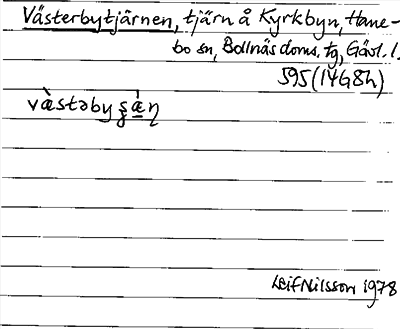 Västerbytjärnen, tjärn å Kyrkbyn, Hane-
bo sn, Bollnäs doms. tg, Gävl. l.
595 (14G8h)
væ̀stəby ʂæ̀ɳ
Leif Nilsson 1978